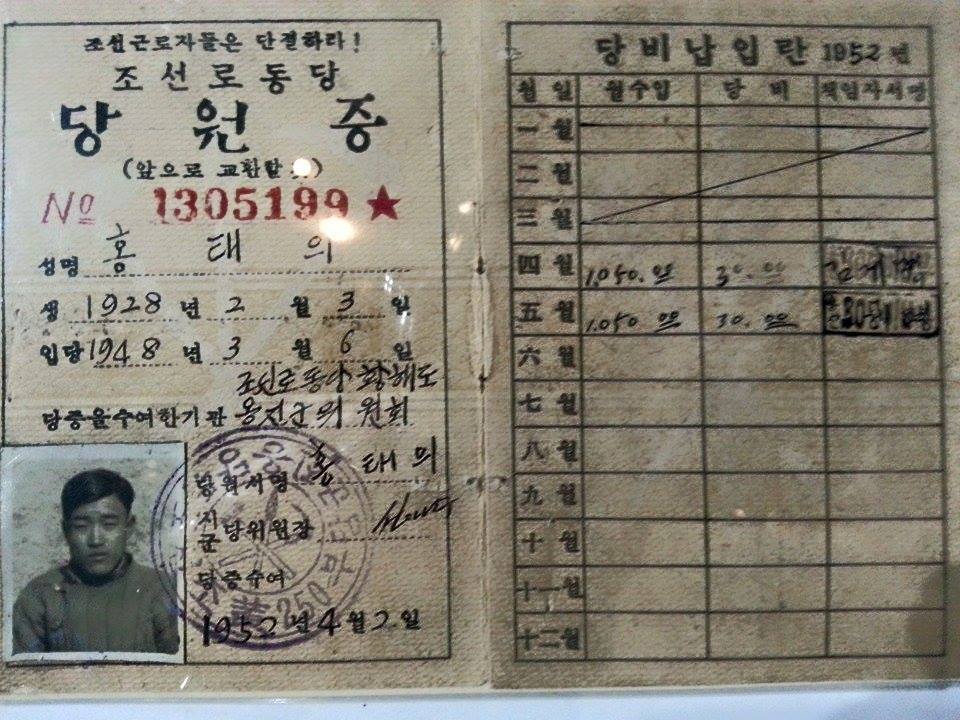 조선근로자들은 단결하라!
조선로동당
당원증
(앞으로 교환할
No 1305199 ★
성명 홍태의
생 1928년 2월 3일
입당 1948년 3월 6일
조선로동당 황해도
당증을수여한기관 옹진군위원회
당원서명 홍태의
시군당위원장
당증수여
1952년 4월 2일
당비납입란 1952년
월일 월수입 당비 책임자서명
一월
二월
三월
四월 1.050.00 30.00
五월 1.050 00 30.00
六월
七월
八월
九월
十월
十一월
十二월